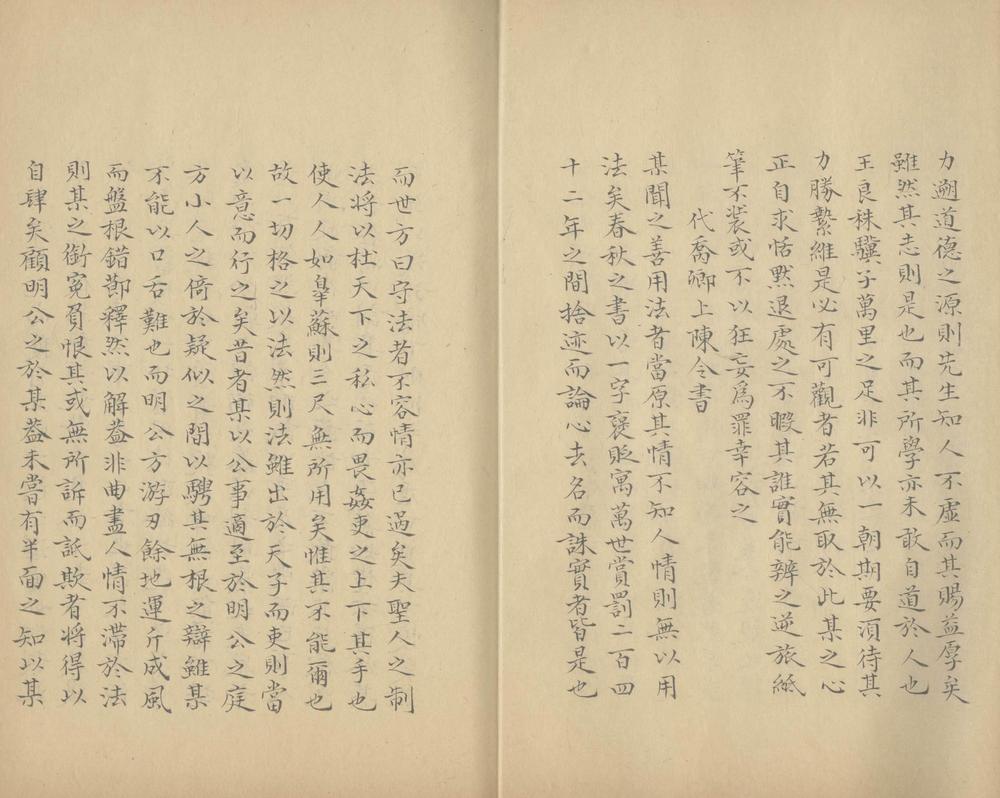 力遡道德之源則先生知人不虛而其賜益厚矣
雖然其志則是也而其所學亦未敢自道於人也
王良秣驥子萬里之足非可以一朝期要須待其
力勝縶維是必有可觀者若其無取於此某之心
正自求恬默退處之不暇其誰實能辨之逆旅紙
筆不裝或不以狂妄爲罪幸容之
代喬卿上陳令書
某聞之善用法者當原其情不知人情則無以用
法矣春秋之書以一字褒貶寓萬世賞罰二百四
十二年之間捨迹而論心去名而誅實者皆是也
而世方曰守法者不容情亦已過矣夫聖人之制
法將以杜天下之私心而畏姦吏之上下其手也
使人人如皋蘇則三尺無所用矣惟其不能爾也
故一切格之以法然則法雖出於天子而吏則當
以意而行之矣昔者某以公事適至於明公之庭
方小人之倚於疑似之間以騁其無根之辯雖某
不能以口舌難也而明公方游刃餘地運斤成風
而盤根錯節釋然以解益非曲盡人情不滯於法
則某之銜冤負恨其或無所訴而詆欺者將得以
自肆矣顧明公之於某葢未嘗有半面之知以某